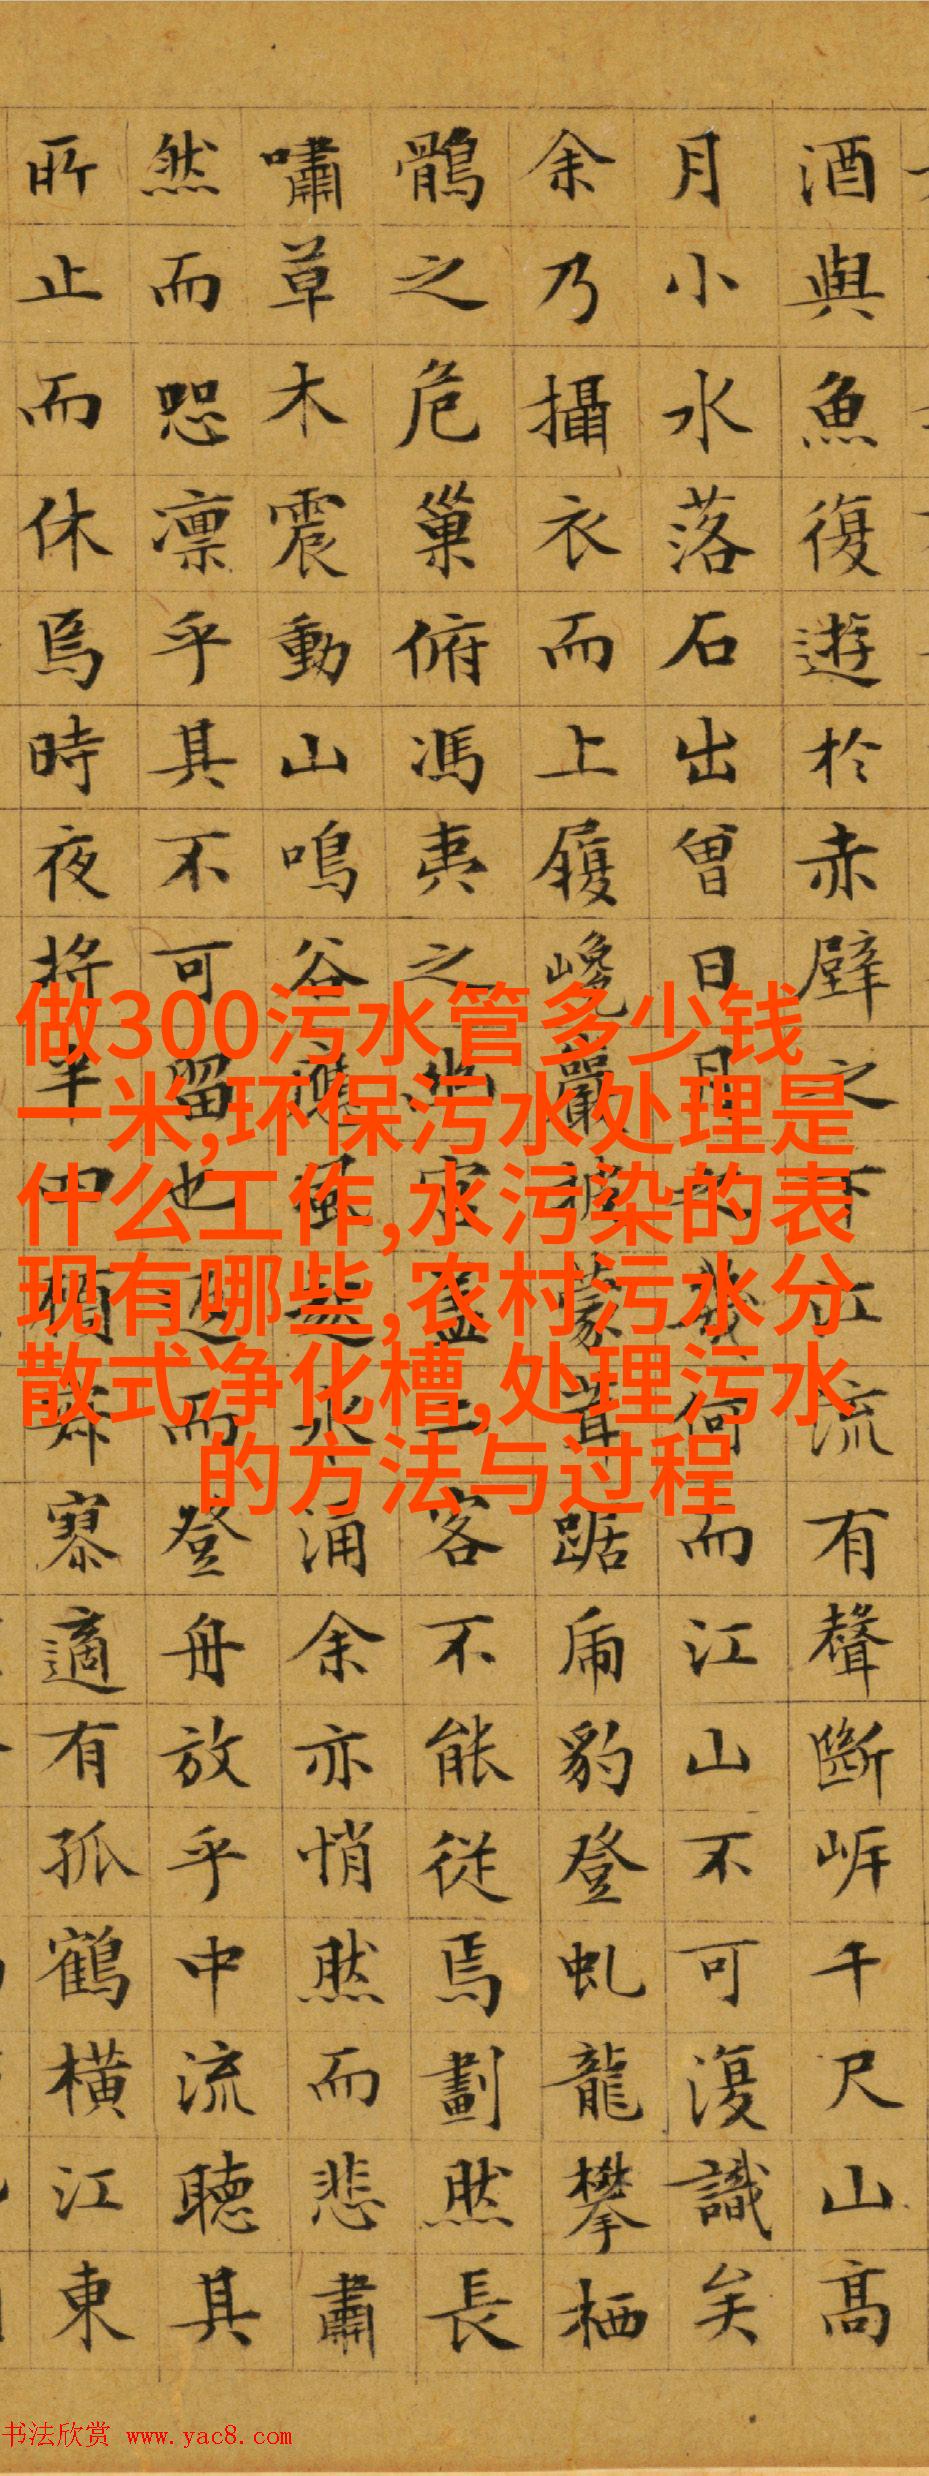 酒與魚復遊於赤壁之下江流有聲斷岸千尺山高
月小水落石出曾日月之幾何而江山不可復識矣
余乃攝衣而上履巉巖披蒙茸踞虎豹登虬龍攀栖
鶻之危巢俯馮夷之幽宮蓋二客不能從焉劃然長
嘯草木震動山鳴谷應風起水涌余亦悄然而悲肅
然而恐凛乎其不可留也返而登舟放乎中流聽其
所止而休焉時夜將半四顧寂寥適有孤鶴橫江東
做300污水管多少钱
一米,环保污水处理是
什么工作,水污染的表
现有哪些,农村污水分
散式净化槽,处理污水
的方法与过程
书法欣赏 www.yac8.com